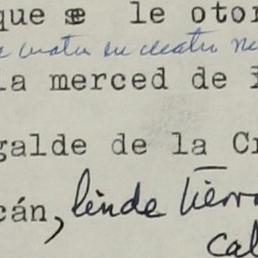 que se le otor
de cuatro en cuatro ve
la merced de i
galde de la Cr
cán, linde tierra
cal